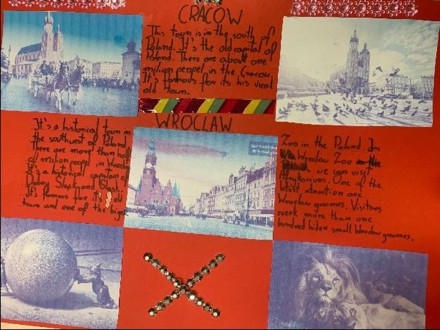 CRACOW
This town is in the south of
Poland. It's the old capital of
Poland. There are about one
million people in the Cracow.
It's famous for its
old town.
WROCLAW
It's a historical town in
the southwest of Poland
there are more than half
of million people in
It's a historical capital of
Lower Silesia and
It's famous for it's old
town and one of the
Zoo in the Poland. In
Wroclaw Zoo
we can visit
One of the
attraction are
Wroclaw gnomes. Visitors
seek more than one
hundred small Wroclaw gnomes.